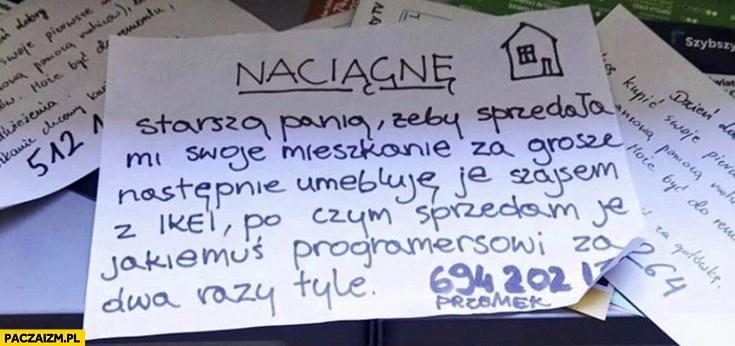 NACIĄGNĘ
starszą panią, żeby sprzedała
mi swoje mieszkanie za grosze
następnie umebluję je szajsem
z IKEI, po czym sprzedam je
jakiemuś programersowi za
dwa razy tyle.
694 202
PRZEMEK
dobry
swoje pierwsze
pomocą
Może być do remontu
512
Szybszy
Dzień
kupić swoje
pomocą
Może być do
za gotówkę
264
PACZAIZM.PL